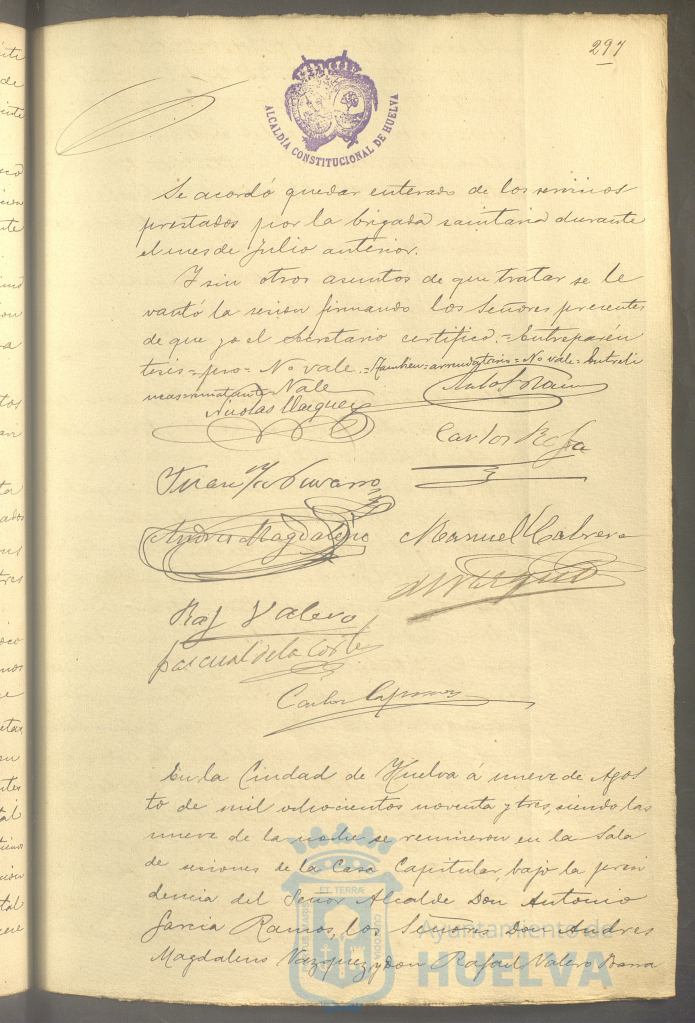 297
ALCALDÍA CONSTITUCIONAL DE HUELVA
Se acordó quedar enterado de los servicios
prestados por la brigada sanitaria durante
el mes de Julio anterior.
Y sin otros asuntos de que tratar se le
vantó la sesion firmando los Señores presentes
de que yo el Secretario certifico.=Entreparén
tesis=pro=No vale.=Tambien=arrendatario=No vale=Entreli
neas=rematante Vale
Nicolas Vazquez
Carlos
Juan Navarro
Andres Magdaleno
Manuel Cabrera
Raf Valero
Pascual de la Corte
Carlos
En la Ciudad de Huelva á nueve de Agos
to de mil ochocientos noventa y tres, siendo las
nueve de la noche se reunieron en la Sala
de sesiones de la Casa Capitular, bajo la presi
dencia del Señor Alcalde Don Antonio
Garcia Ramos, los Señores don Andres
Magdaleno Vazquez, y Don Rafael Valero
Ayuntamiento de
HUELVA